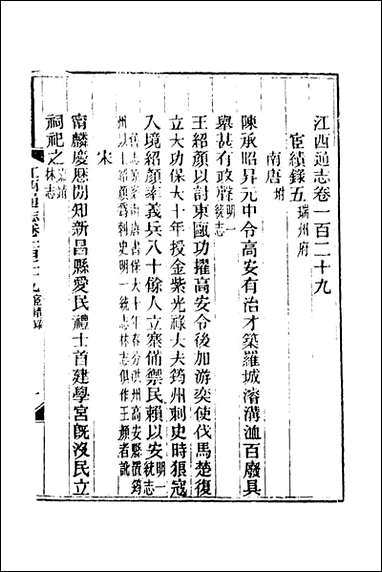 江西通志卷一百二十九
宦績錄五 瑞州府
南唐 附
陳承昭昇元中令高安有治才築羅城濬溝洫百廢具
舉甚有政聲 明一統志
王紹顏以討東甌功擢高安令後加游奕使伐馬楚復
立大功保大十年授金紫光祿大夫筠州刺史時狼寇
入境紹顏率義兵八十餘人立寨備禦民賴以安 明一統志
州以紹顏為刺史明一統志林志俱作王顏者訛
宋
甯麟慶厯閒知新昌縣愛民禮士首建學宮旣沒民立
祠祀之 林志